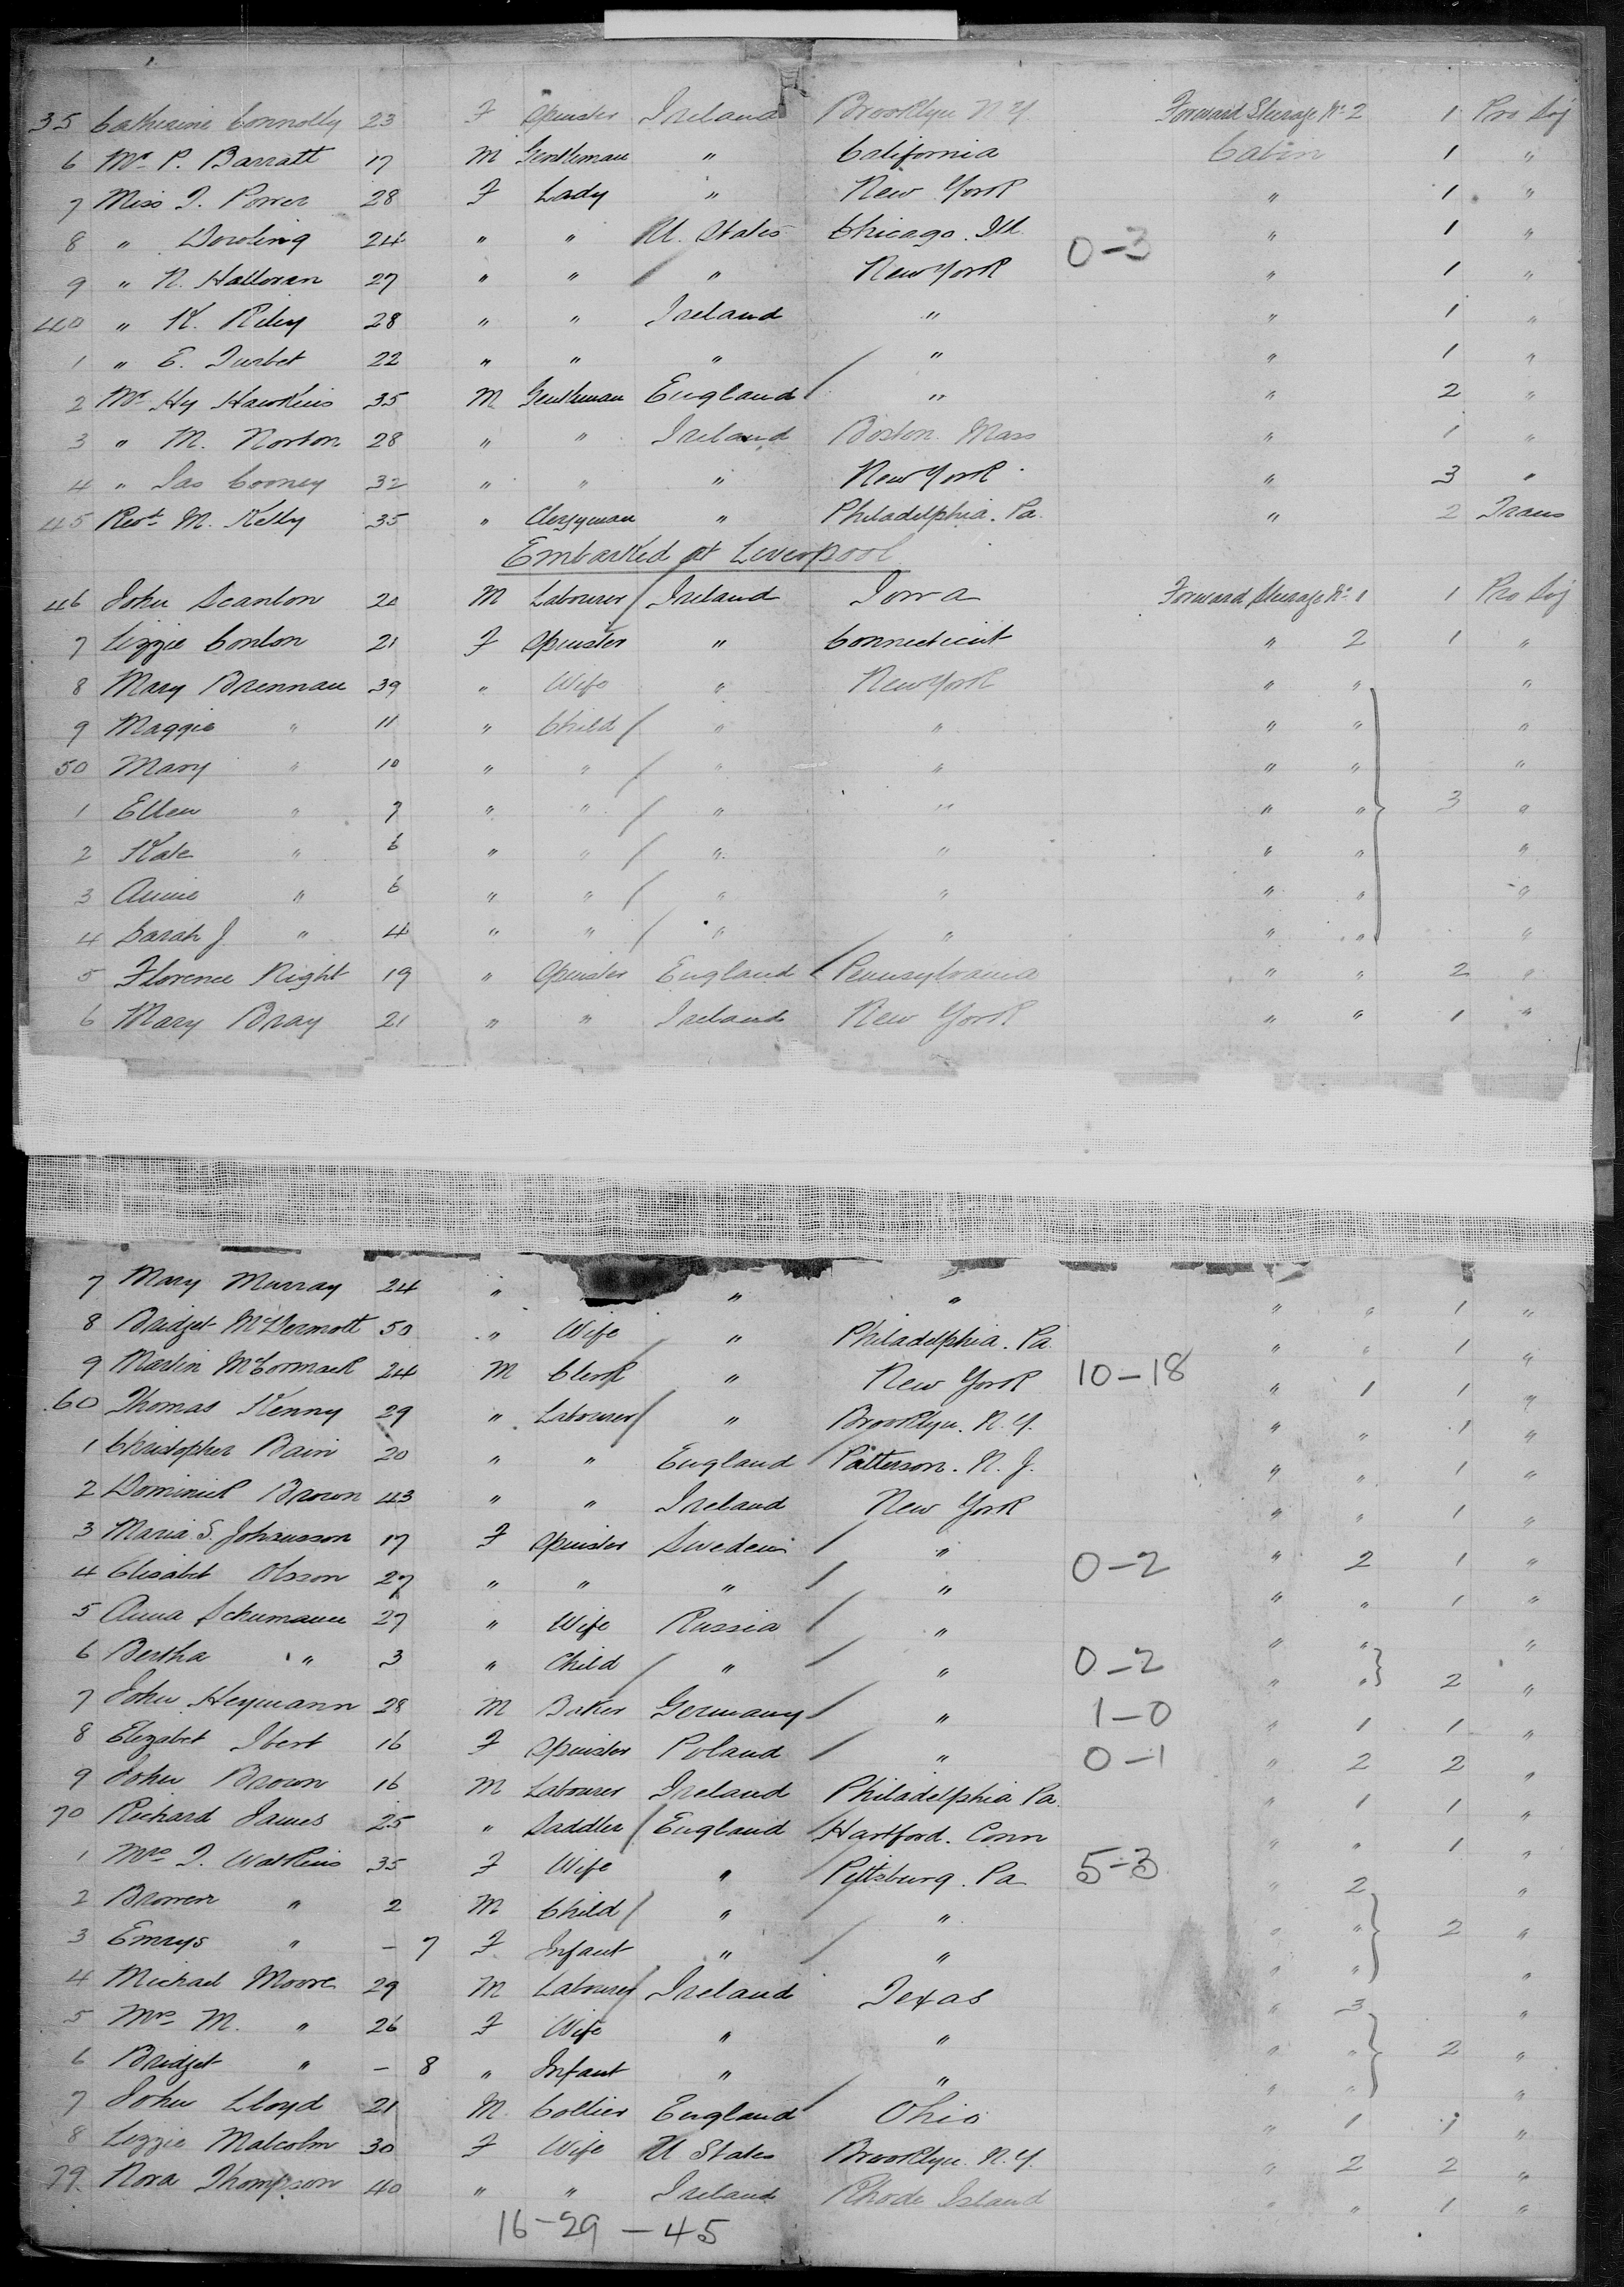 35 Catherine Connolly 23 F Spinster Ireland Brooklyn N Y Forward Steerage No 2 1 Pro Soj
6 Mr P. Barratt 17 M Gentleman " California Cabin 1 "
7 Miss J. Power 28 F Lady " New York " 1 "
8 " Dowling 24 " " U. States Chicago. Ill. 0-3 " 1 "
9 " N. Halloran 27 " " " New York " 1 "
40 " K. Riley 28 " " Ireland " " 1 "
1 " E. Turbet 22 " " " " " 1 "
2 Mr Hy Hawkins 35 M Gentleman England " " 2 "
3 " M. Norton 28 " " Ireland Boston. Mass " 1 "
4 " Jas Cooney 32 " " " New York " 3 "
45 Revt M. Kelly 35 " Clergyman " Philadelphia. Pa. " 2 Trans
Embarked at Liverpool
46 John Scanlon 20 M Labourer Ireland Iowa Forward Steerage No 1 1 Pro Soj
7 Lizzie Conlon 21 F Spinster " Connecticut " 2 1 "
8 Mary Brennan 39 " Wife " New York " " "
9 Maggie " 11 " Child " " " " "
50 Mary " 10 " " " " " " "
1 Ellen " 7 " " " " " " 3 "
2 Kate " 6 " " " " " " "
3 Annie " 6 " " " " " " "
4 Sarah J " 4 " " " " " " "
5 Florence Night 19 " Spinster England Pennsylvania " " 2 "
6 Mary Bray 21 " " Ireland New York " " 1 "
7 Mary Murray 24 " " " " " 1 "
8 Bridget McDermott 50 " Wife " Philadelphia. Pa. " " 1 "
9 Martin McCormack 24 M Clerk " New York 10-18 " 1 1 "
60 Thomas Kenny 29 " Labourer " Brooklyn. N. Y. " " 1 "
1 Christopher Bain 20 " " England Patterson. N. J. " " 1 "
2 Dominick Brown 43 " " Ireland New York " " 1 "
3 Maria S. Johansson 17 F Spinster Sweden " 0-2 " 2 1 "
4 Elisabet Olsson 27 " " " " " " 1 "
5 Anna Schumann 27 " Wife Russia " " " "
6 Bertha " 3 " Child " " 0-2 " " 2 "
7 John Heymann 28 M Baker Germany " 1-0 " 1 1 "
8 Elizabet Ibert 16 F Spinster Poland " 0-1 " 2 2 "
9 John Brown 16 M Labourer Ireland Philadelphia Pa. " 1 1 "
70 Richard James 25 " Saddler England Hartford. Conn " " 1 "
1 Mrs J. Watkins 35 F Wife " Pittsburg. Pa 5-3 " 2 "
2 " 2 M Child " " " " 2 "
3 Emrys " - 7 F Infant " " " " "
4 Michael Moore 29 M Labourer Ireland Texas " 3 "
5 Mrs M. " 26 F Wife " " " " 2 "
6 Bridget " - 8 " Infant " " " " "
7 John Lloyd 21 M. Collier England Ohio " 1 1 "
8 Lizzie Malcolm 30 F Wife U States Brooklyn. N. Y. " 2 2 "
79. Nora Thompson 40 " " Ireland Rhode Island " " 1 "
16-29-45